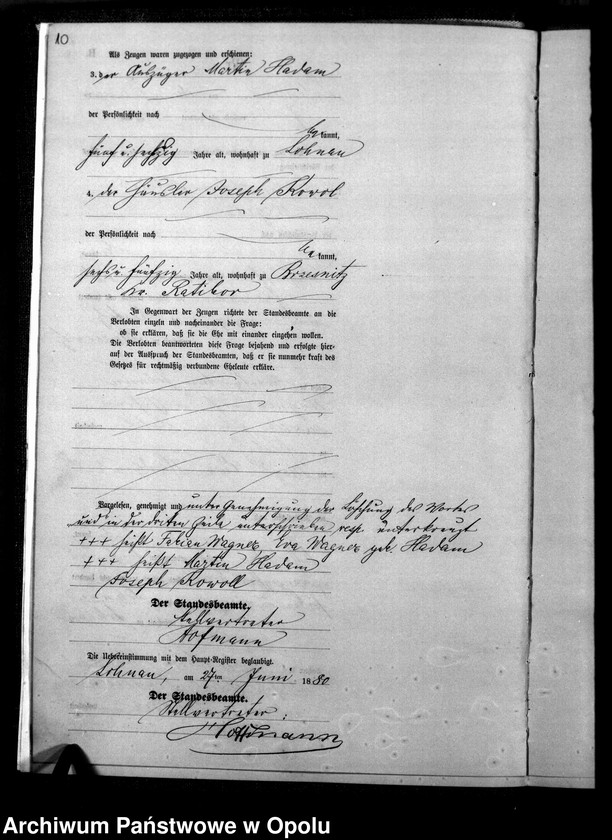 10
Als Zeugen waren zugezogen und erschienen:
3. der Auszüger Martin Hadam
der Persönlichkeit nach
be kannt,
fünf u. sechzig Jahre alt, wohnhaft zu Lohnau
4. der Häusler Joseph Kowol
der Persönlichkeit nach
be kannt,
sechs u. fünfzig Jahre alt, wohnhaft zu Brzesnitz
Kr. Ratibor
In Gegenwart der Zeugen richtete der Standesbeamte an die
Verlobten einzeln und nacheinander die Frage:
ob sie erklären, daß sie die Ehe mit einander eingehen wollen.
Die Verlobten beantworteten diese Frage bejahend und erfolgte hier-
auf der Ausspruch des Standesbeamten, daß er sie nunmehr kraft des
Gesetzes für rechtmäßig verbundene Eheleute erkläre.
Vorgelesen, genehmigt und unter Genehmigung der Löschung des Wortes
und in der dritten Zeile unterschrieben resp. unterkreuzt
+++ heißt Fabian Wagner Eva Wagner geb. Hadam
+++ heißt Martin Hadam
Joseph Kowoll
Der Standesbeamte.
Stellvertreter
Hofmann
Die Uebereinstimmung mit dem Haupt-Register beglaubigt.
Lohnau, am 27ten Juni 1880
Der Standesbeamte.
Stellvertreter:
Hoffmann
Archiwum Państwowe w Opolu